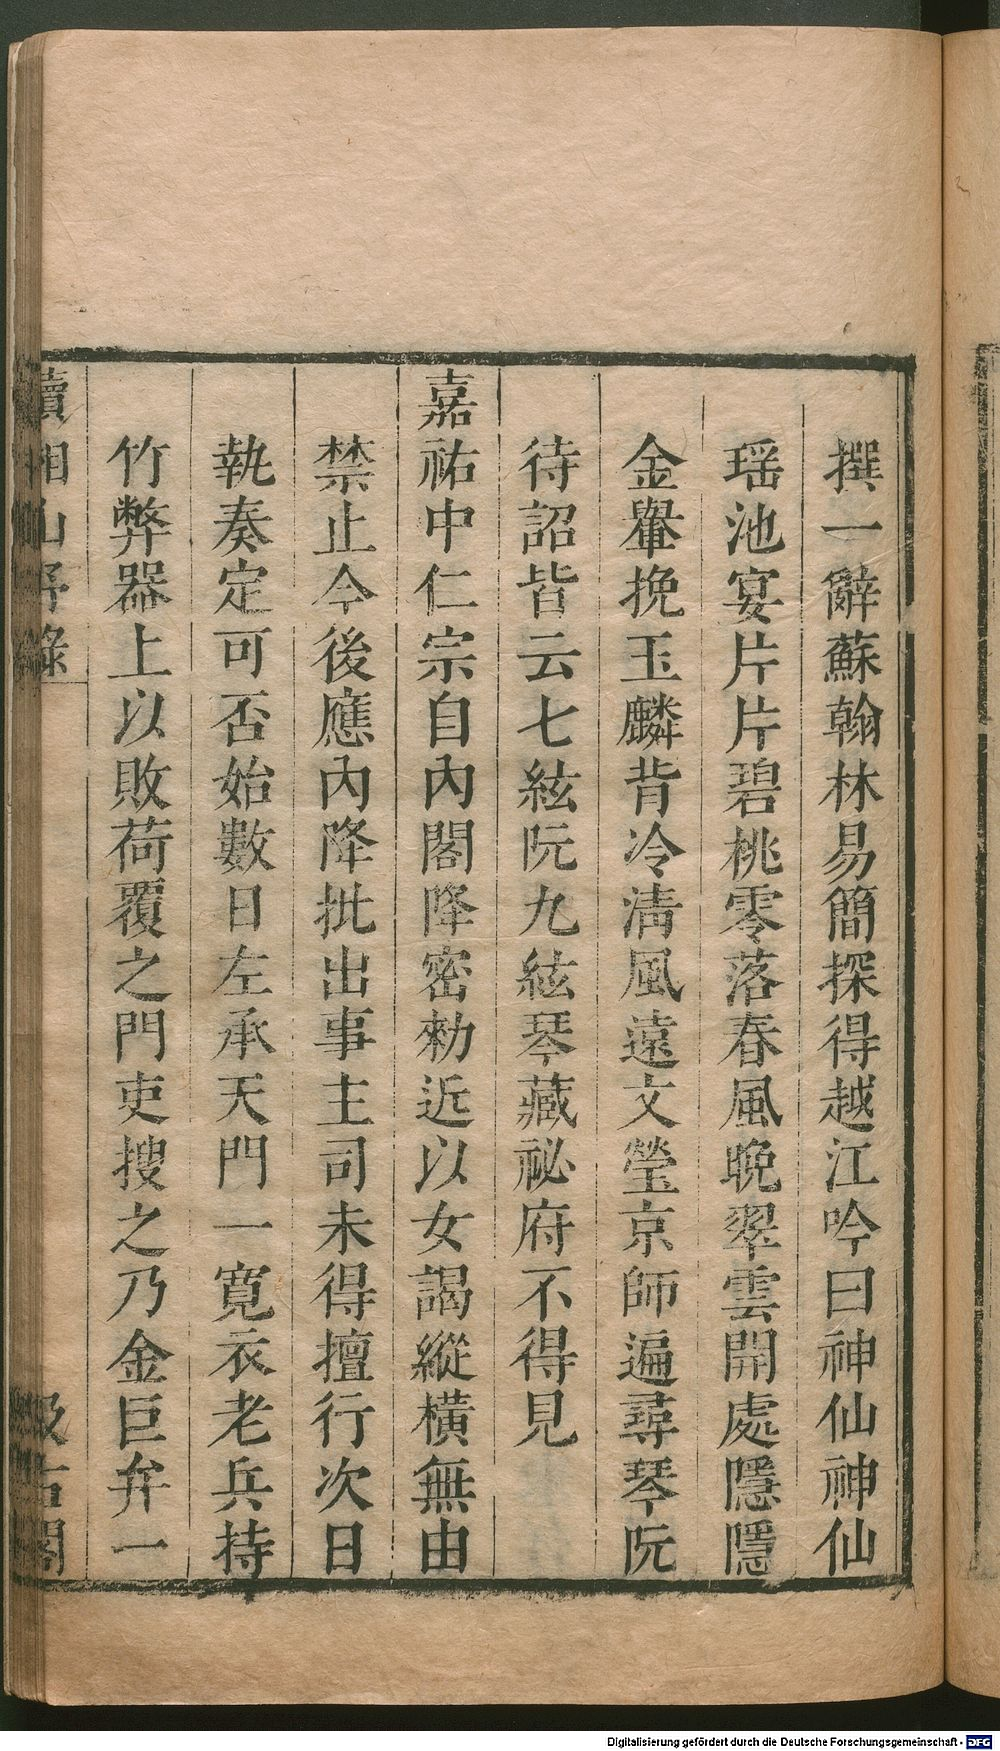 撰一辭蘇翰林易簡探得越江吟曰神仙神仙
瑶池宴片片碧桃零落春風晚翠雲開處隱隱
金轝挽玉麟背冷清風遠文瑩京師遍尋琴阮
待詔皆云七絃阮九絃琴藏祕府不得見
嘉祐中仁宗自內閣降密勑近以女謁縱橫無由
禁止今後應內降批出事主司未得擅行次日
執奏定可否始數日左承天門一寬衣老兵持
竹弊器上以敗荷覆之門吏搜之乃金巨弁一
續湘山野錄
汲古閣
Digitalisierung gefördert durch die Deutsche Forschungsgemeinschaft - DFG